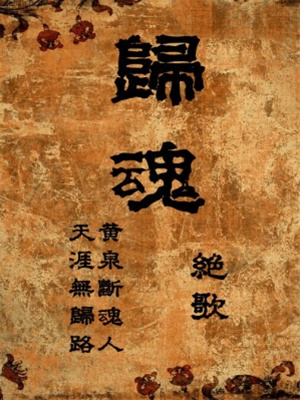 歸魂
絶歌
黄泉斷魂人
天涯無歸路